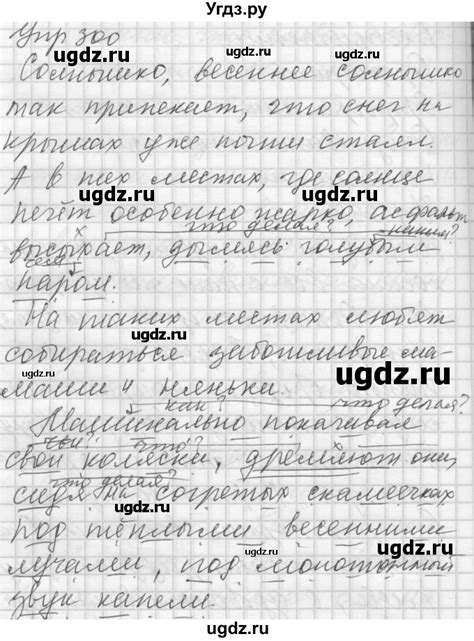 Угдз.ру
Упр 300
ugdz.ru
Солнышко, весеннее солнышко
так припекает, что снег на
ugdz.ru
крышах уже почти стаял.
ugdz.ru
А в тех местах, где солнце
ugdz.ru
печёт особенно жарко, асфальт
что делая? каким?
высыхает, дымясь голубым
чем?
паром.
ugdz.ru
На таких местах любят
ugdz.ru
собираться заботливые ма-
ugdz.ru
маши и няньки.
как? что делая?
Машинально покачивая
чьи? что?
ugdz.ru
свои коляски, дремлют они,
что делая?
сидя на согретых скамеечках
ugdz.ru
под тёплыми весенними
ugdz.ru
лучами, под монотонный
ugdz.ru
звук капели.
Угдз.ру